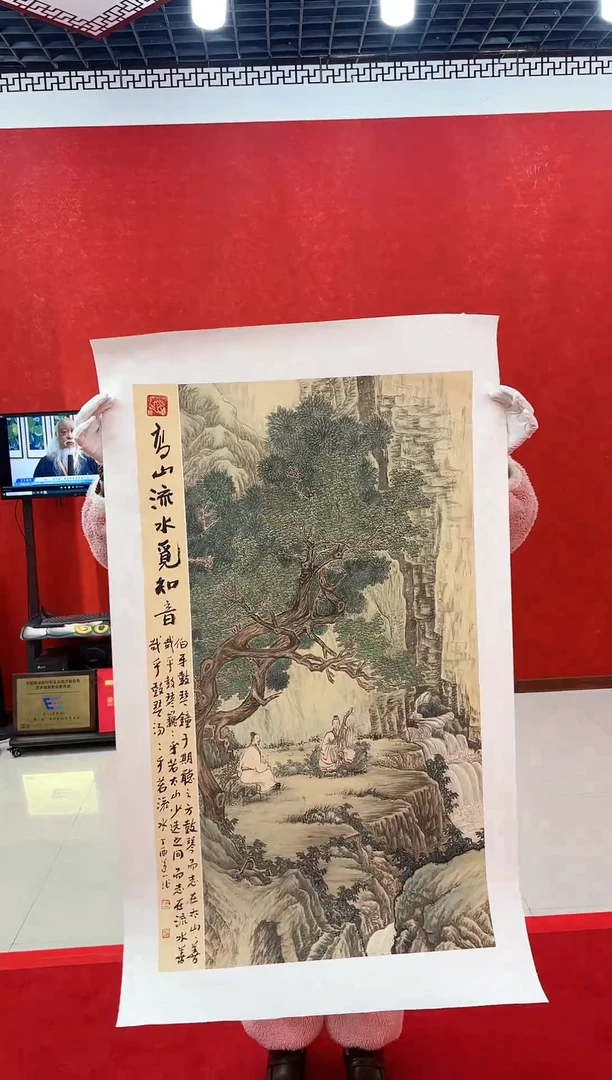 高山流水覓知音
伯牙鼓琴鐘子期聽之方鼓琴而志在太山善
哉乎鼓琴巍〻乎若太山少选之间而志在流水善
哉乎鼓琴汤〻乎若流水 丁酉